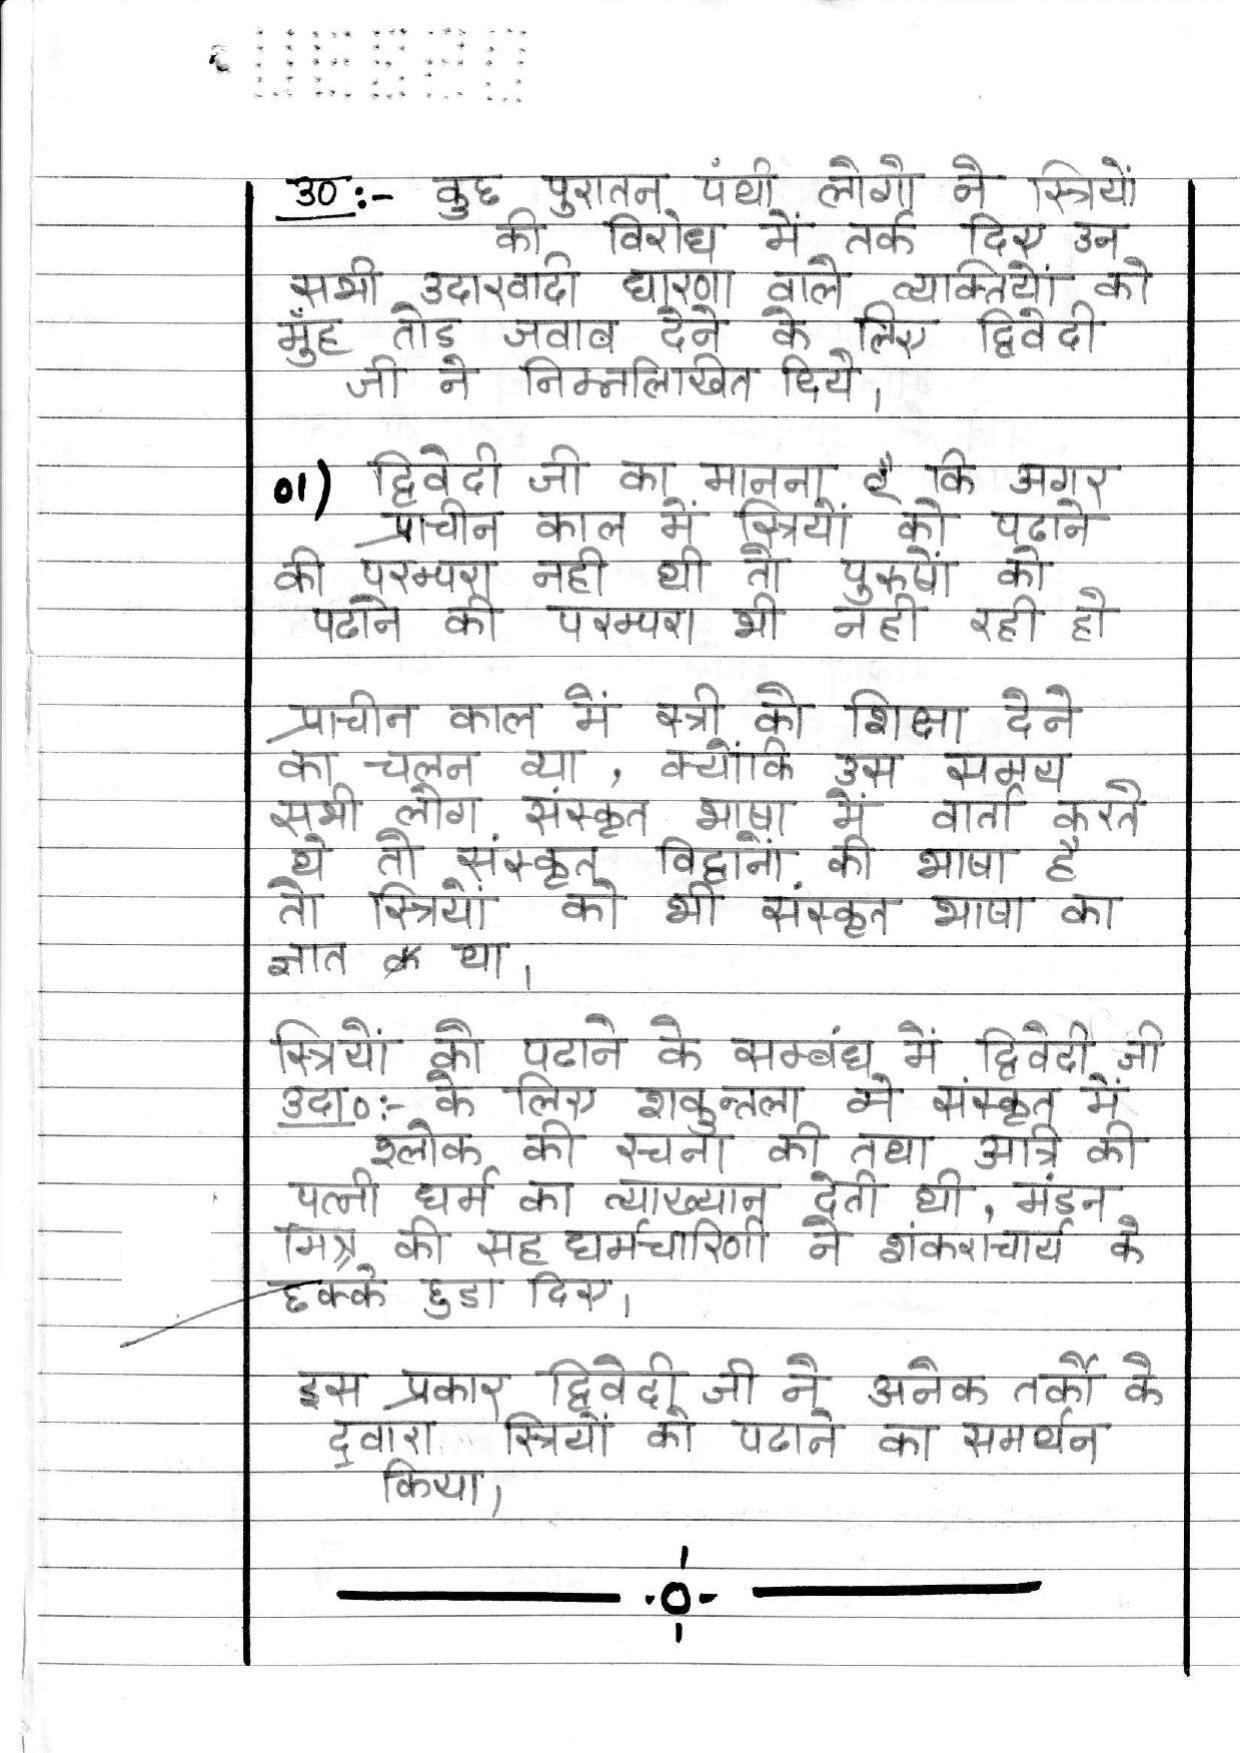 उ०:- कुछ पुरातन पंथी लोगो ने स्त्रियों
की विरोध में तर्क दिए उन
सभी उदारवादी धारणा वाले व्यक्तियों को
मुंह तोड जवाब देने के लिए द्विवेदी
जी ने निम्नलिखित दिये।
01) द्विवेदी जी का मानना है कि अगर
प्राचीन काल में स्त्रियों को पढाने
की परम्परा नही थी तो पुरुषों को
पढाने की परम्परा भी नही रही हो
प्राचीन काल में स्त्री को शिक्षा देने
का चलन था, क्योंकि उस समय
सभी लोग संस्कृत भाषा में वार्ता करते
थे तो संस्कृत विद्वानों की भाषा है
तो स्त्रियों को भी संस्कृत भाषा का
ज्ञात था।
स्त्रियों को पढाने के सम्बंध में द्विवेदी जी
उदा०:- के लिए शकुन्तला ने संस्कृत में
श्लोक की रचना की तथा अत्रि की
पत्नी धर्म का व्याख्यान देती थी, मंडन
मिश्र की सह धर्मचारिणी ने शंकराचार्य के
छक्के छुडा दिए।
इस प्रकार द्विवेदी जी ने अनेक तर्कों के
द्वारा स्त्रियों को पढाने का समर्थन
किया।